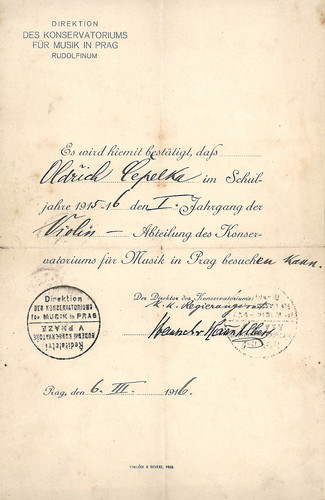 DIREKTION
DES KONSERVATORIUMS
FÜR MUSIK IN PRAG
RUDOLFINUM
Es wird hiemit bestätigt, daß
Oldřich Čepelka im Schul-
jahre 1915-16 den I. Jahrgang der
Violin – Abteilung des Konser-
vatoriums für Musik in Prag besuchen kann.
Der Direktor des Konservatoriums:
k. k. Regierungsrat
Direktion
DES KONSERVATORIUMS
für MUSIK in PRAG
V PRAZE
Ředitelství
Prag, den 6. III. 1916